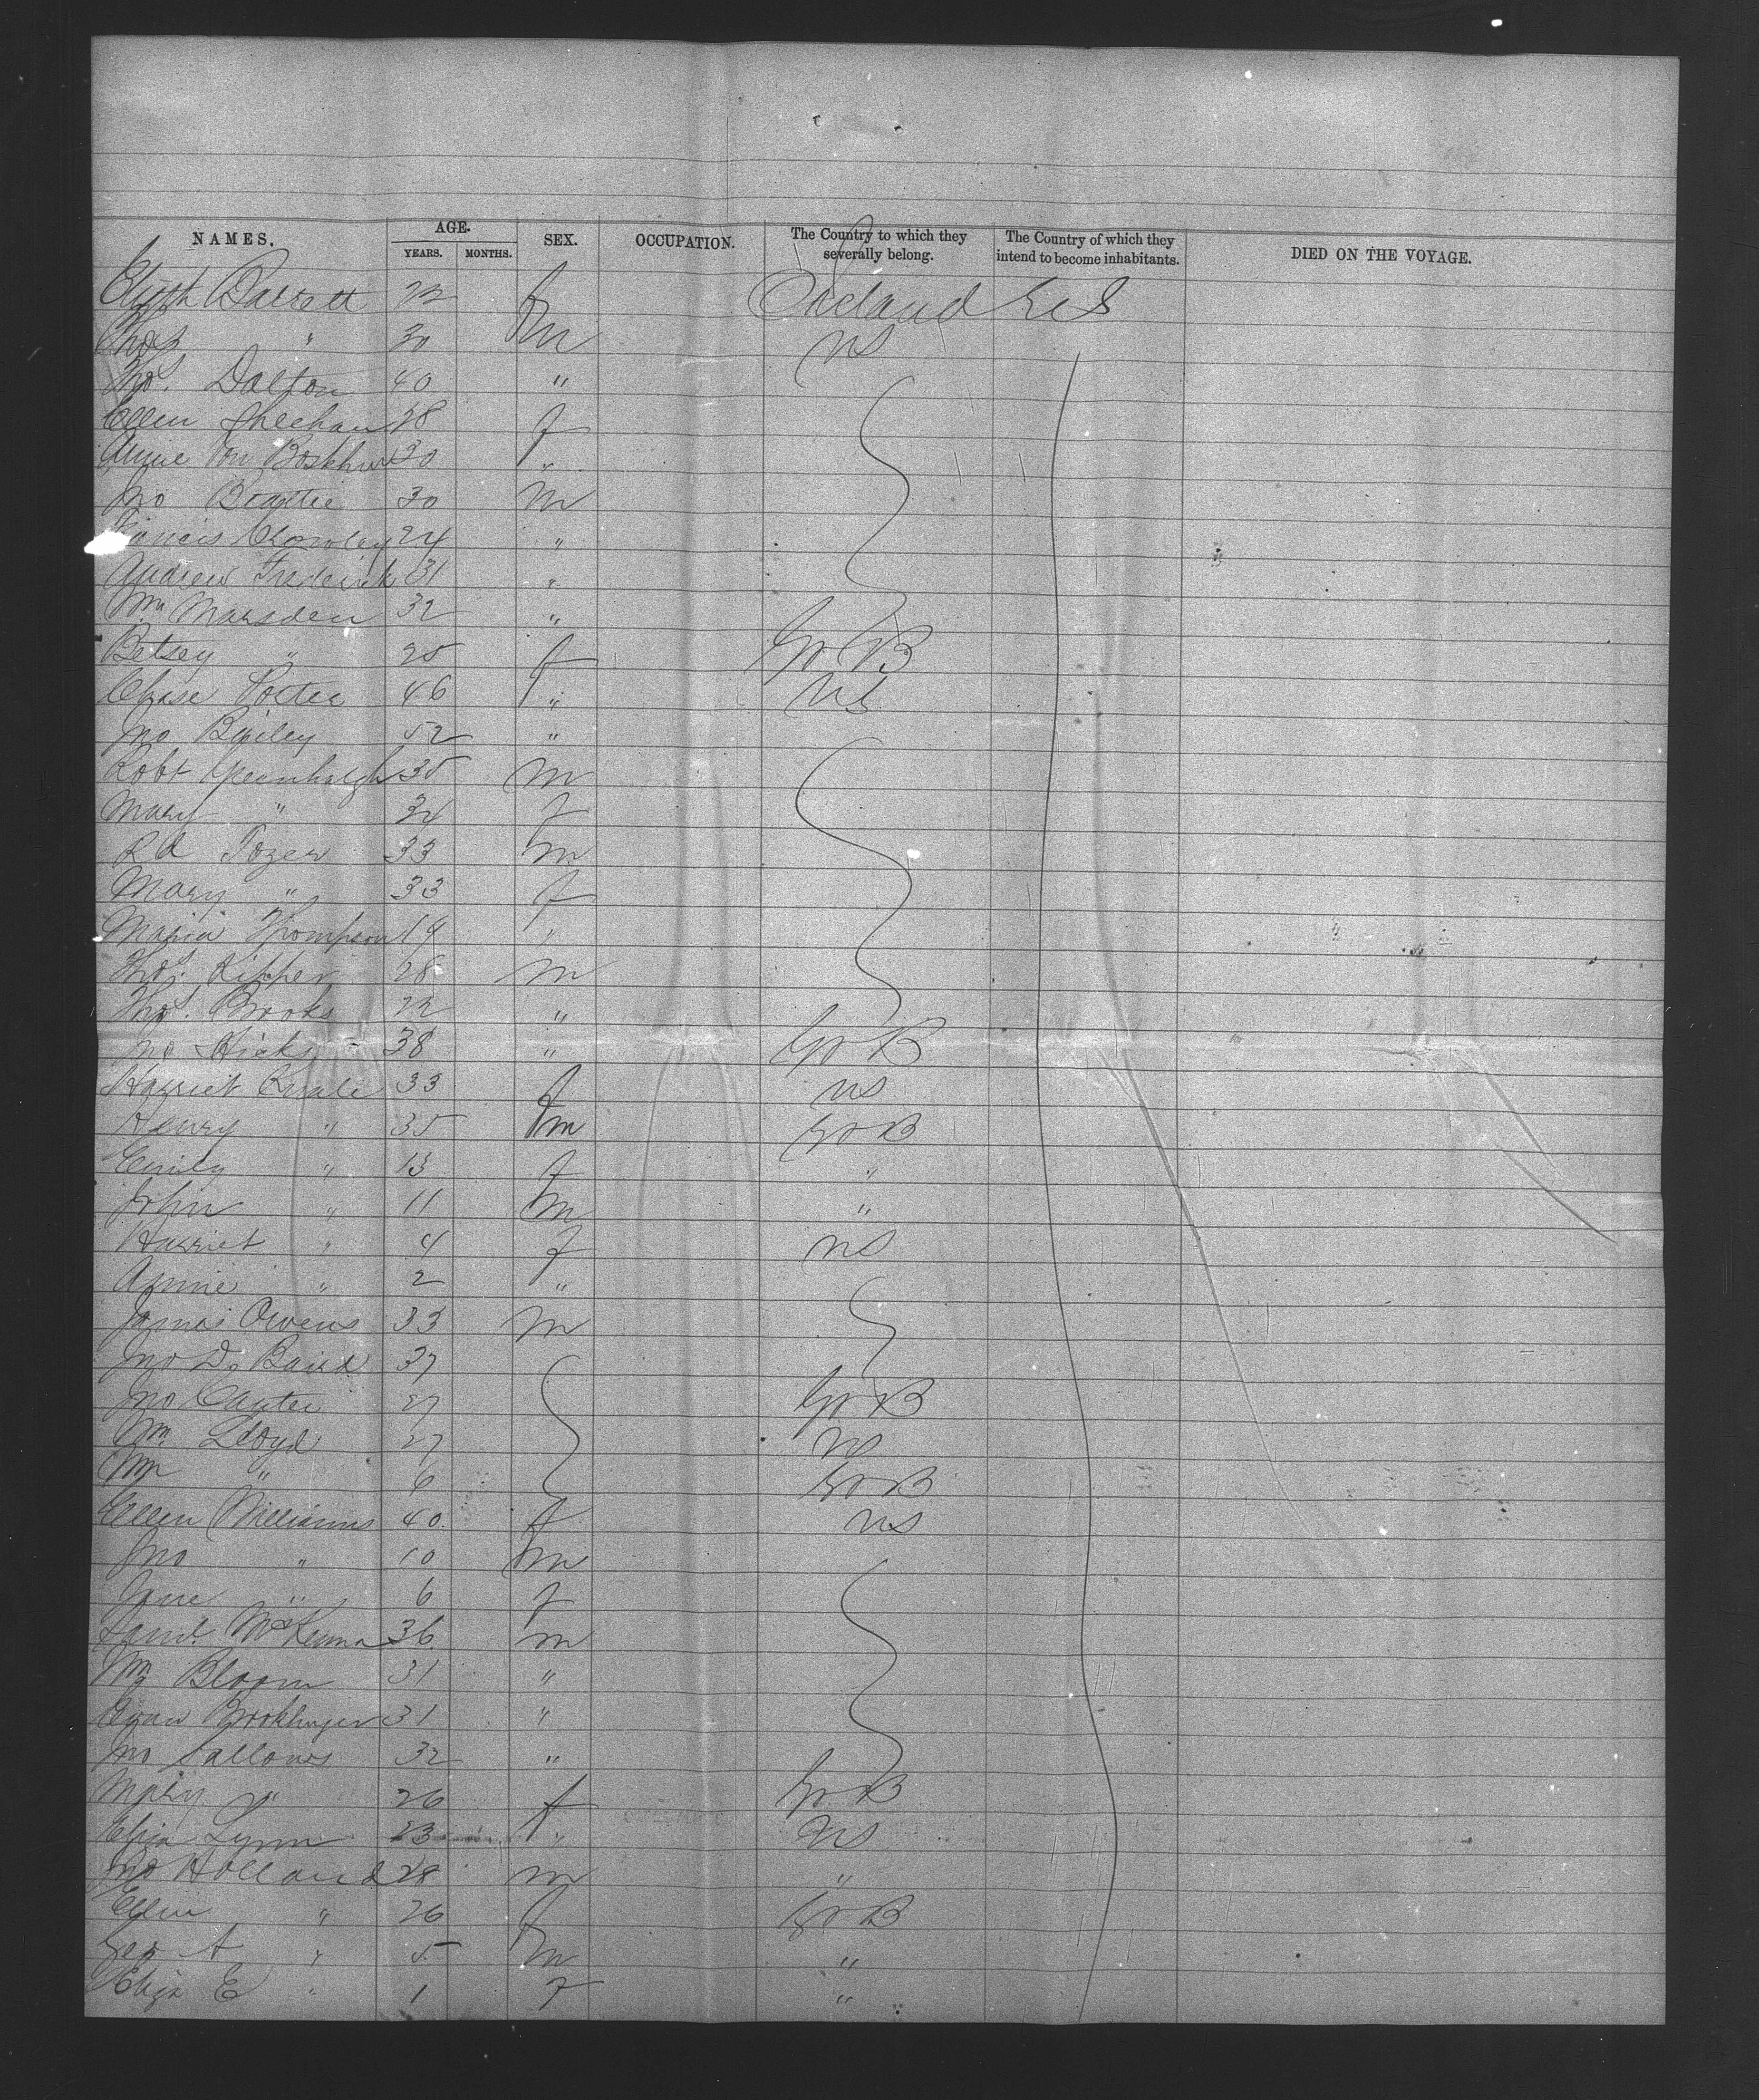 NAMES. AGE. YEARS. MONTHS. SEX. OCCUPATION. The Country to which they severally belong. The Country of which they intend to become inhabitants. DIED ON THE VOYAGE.
Elizth Barrett 22 f Ireland U S
Thos " 30 m U S
Thos. Dalton 40 "
Ellen Sheehan 28 f
Annie Von 30 "
Jno Beattie 30 m
Francis Crowley 24 "
Andrew Frederick 31 "
Wm Marsden 32 "
Betsey " 25 f Gr B
Chase Porter 46 " U S
Jno Bailey 52 "
Robt Greenhalgh 35 m
Mary " 34 f
R A Tozer 33 m
Mary " 33 f
Maria Thompson 19 "
Thos. Kipher 28 m
Thos. Brooks 22 "
Jno Hicks 38 " Gr B
Harriet 33 f U S
Henry " 35 m Gr B
Emily " 13 f "
John " 11 m "
Harriet " 4 f U S
Annie " 2 "
James Owens 33 m
Jno D. Baird 37
Jno Carter 27 Gr B
Wm. Lloyd 27 U S
Wm " 6 Gr B
Ellen Williams 40 f U S
Jno " 10 m
Jane " 6 f
Saml. McKenna 36 m
Wm Bloom 31 "
31 "
Jno Fallows 32 "
Mary " 26 f Gr B
Eliza Lynn 23 " U S
Jno Holland 28 m "
Ellen " 26 f Gr B
Geo A " 5 m "
Eliza E " 1 f "